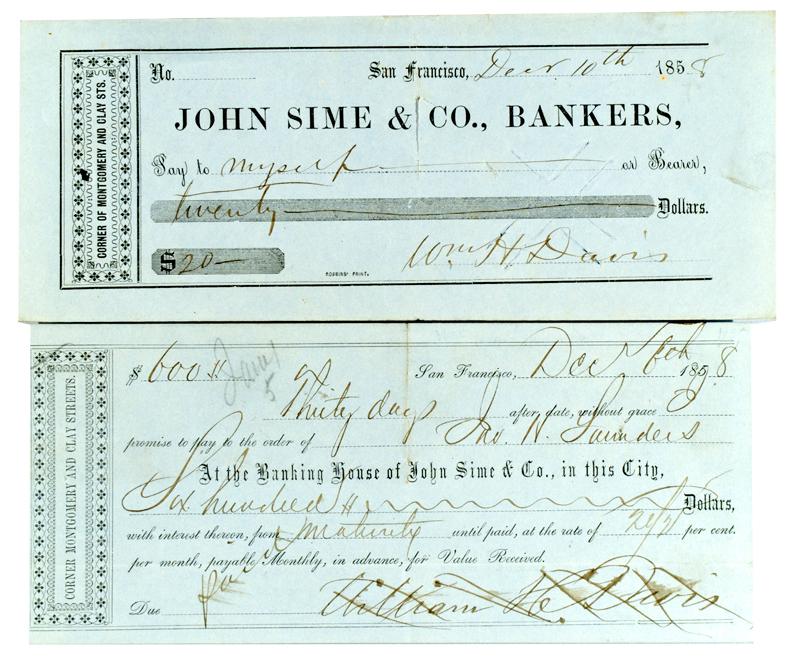 CORNER OF MONTGOMERY AND CLAY STS.
No. San Francisco, Decr. 10th 1858
JOHN SIME & CO., BANKERS,
Pay to myself or Bearer,
twenty Dollars.
$ 20
ROBBINS' PRINT.
Wm H. Davis
CORNER MONTGOMERY AND CLAY STREETS.
$ 600 San Francisco, Dec 1858
Jany
5
Thirty days after date, without grace I
promise to pay to the order of Jno. W. Saunders
At the Banking House of John Sime & Co., in this City,
Six hundred Dollars,
with interest thereon, from maturity until paid, at the rate of 2 1/2 per cent.
per month, payable Monthly, in advance, for Value Received.
Due William H. Davis